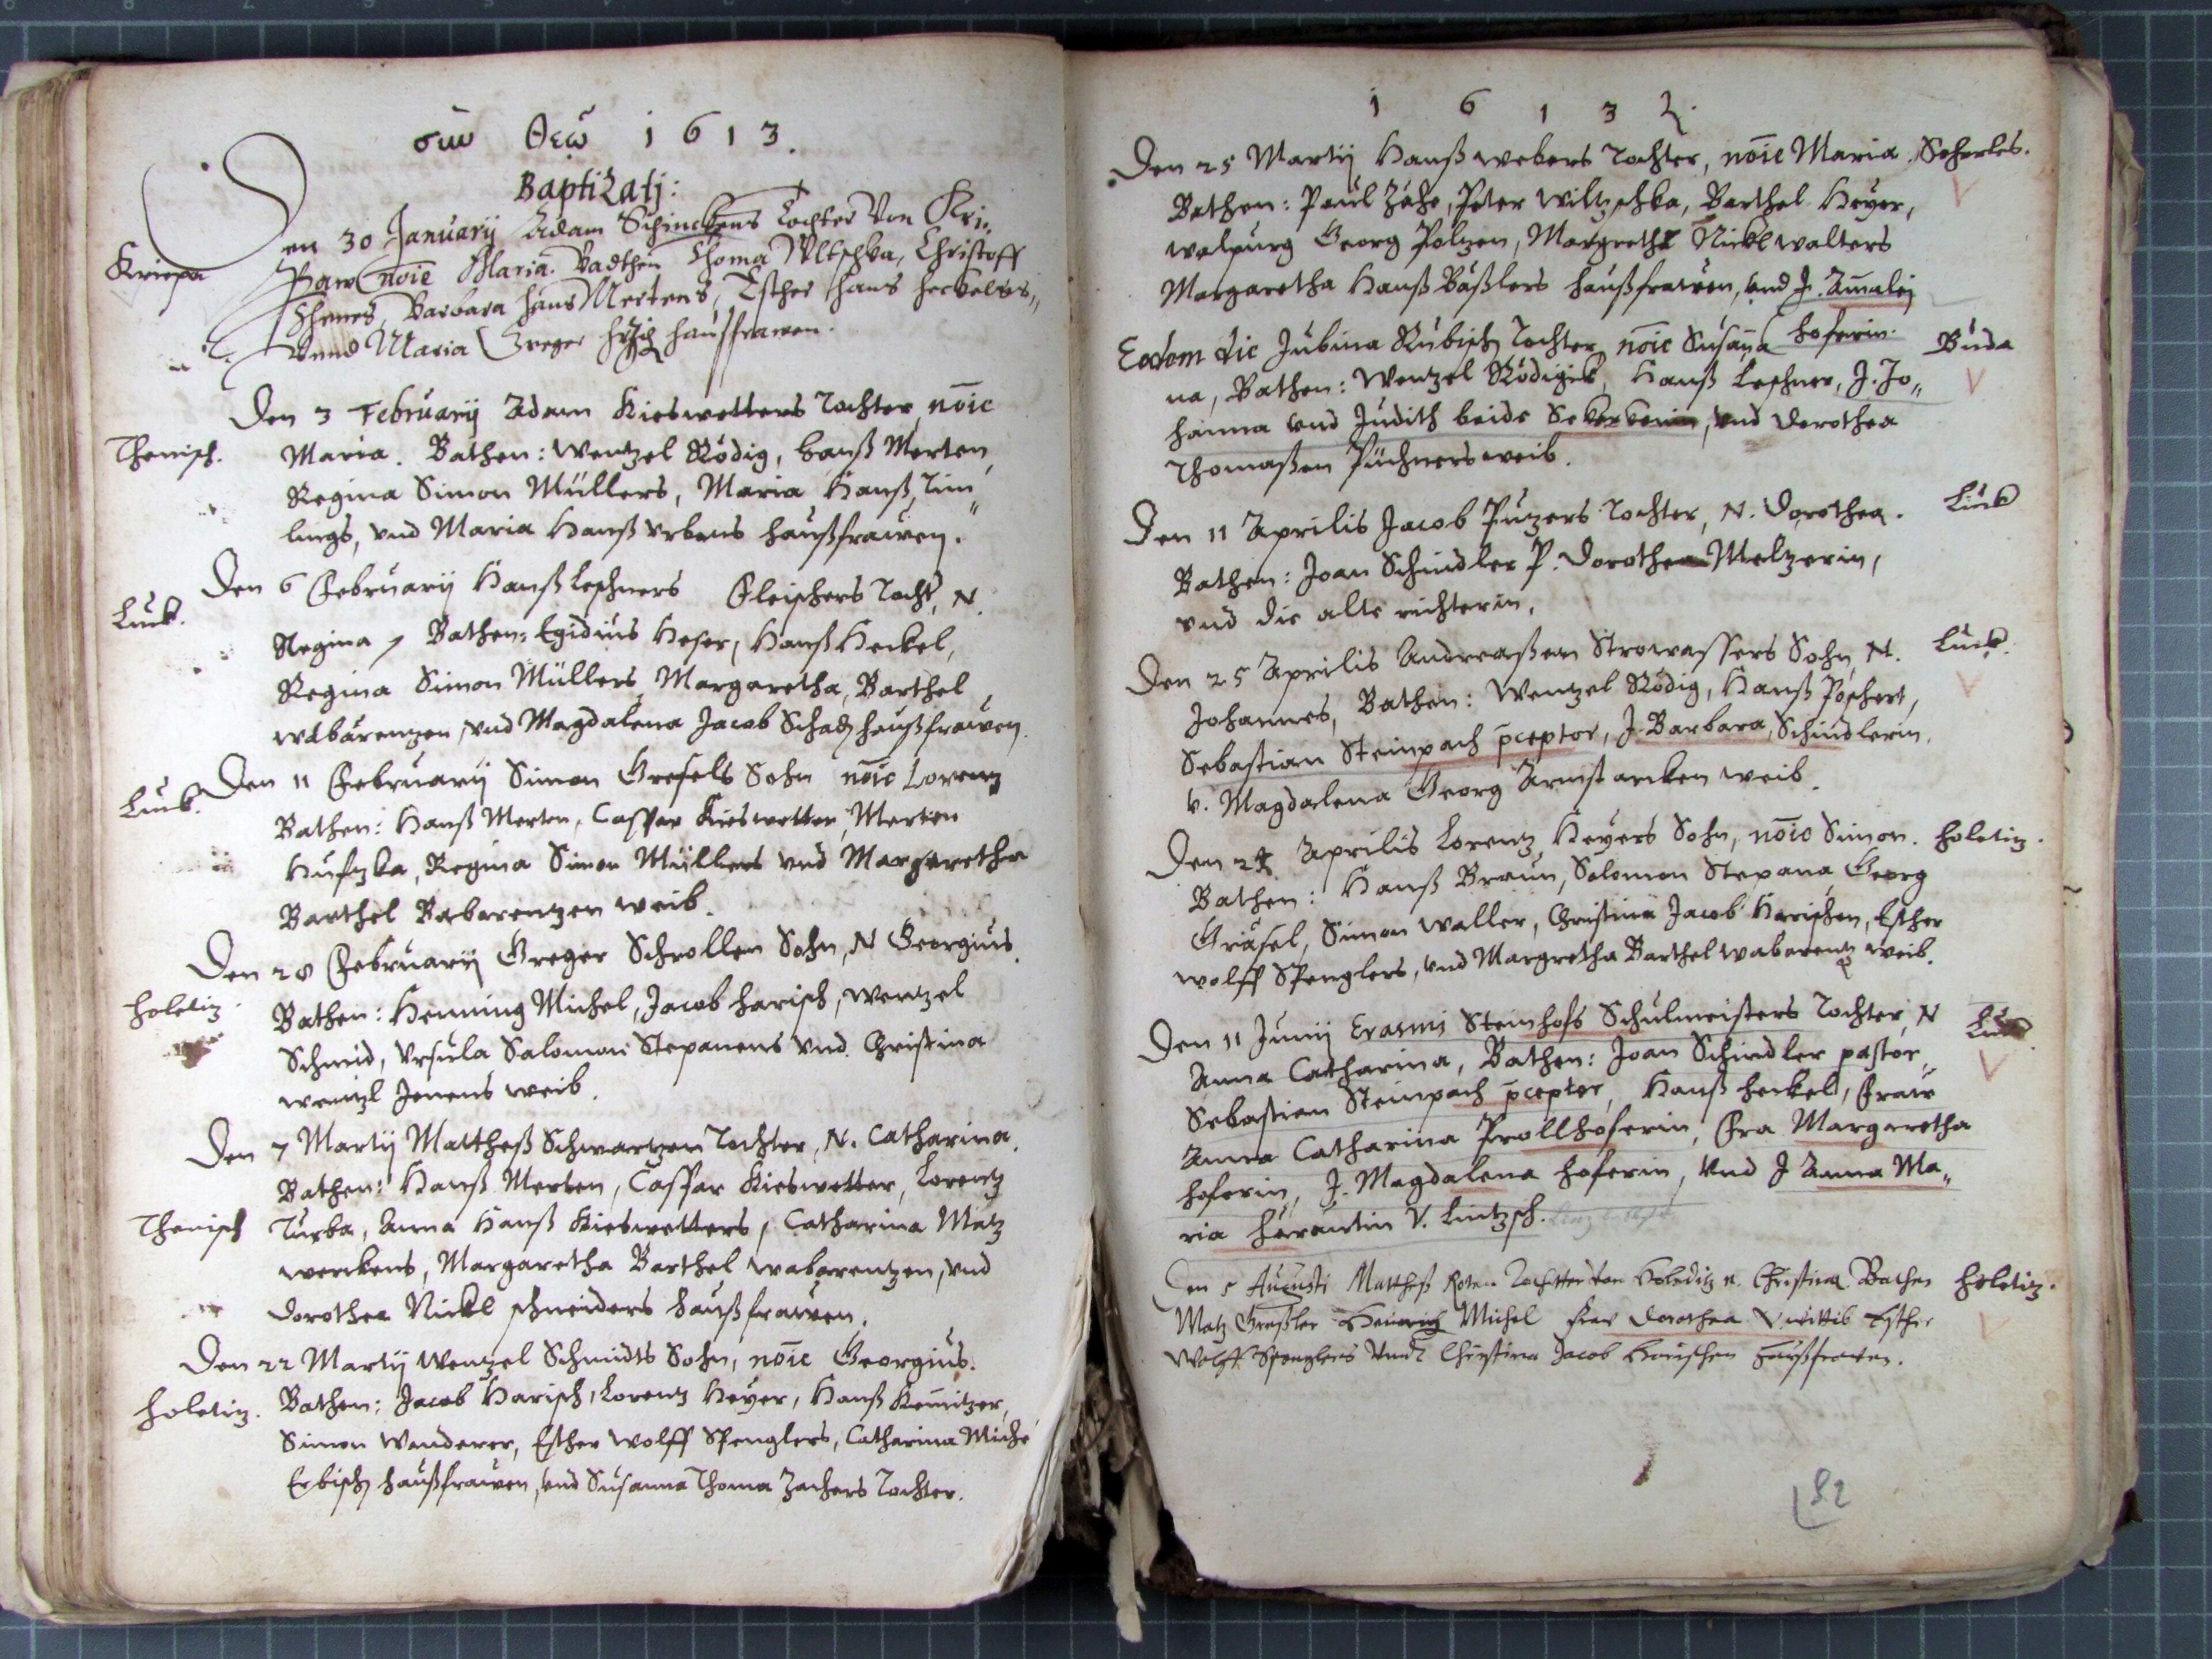 σὺν θεῷ 1613.
Baptizatj:
Den 30 Januarij Adam Schinckens Tochter Von Kri„
Kriepa
paw noîe Maria. Badthen Thoma Wltschka, Christoff
Barbara Hans Mertens, Esther Hans Heckels„
Vnnd Maria Greger haußfrawen.
Den 3 February Adam Kieswetters Tochter noîe
Thenisch.
Maria. Bathen: Wentzel Rödig, Hanß Merten,
Regina Simon Müllers, Maria Hanß Tim„
lings, vnd Maria Hanß Vrbans haußfrawen.
Den 6 Februarij Hanß Leschners Fleischers Tocht, N.
Luck.
Regina, Bathen: Egidius Heser, Hanß Heckel,
Regina Simon Müllers, Margaretha, Barthel
wabarentzen, vnd Magdalena Jacob Schatz haußfrawen.
Den 11 Februarij Simon Gresels Sohn noîe Lorentz
Luck.
Bathen: Hanß Merten, Caspar Kieswetter, Merten
Hufzka, Regina Simon Müllers vnd Margaretha
Barthel Babarentzen weib.
Den 28 Februarij Greger Schrollen Sohn, N Georgius.
Holetiz.
Bathen: Henning Michel, Jacob Harisch, Wentzel
Schmid, Vrsula Salomon Stepanens vnd Christina
wentzl Jenens weib.
Den 7 Martij Mattheß Schwartzen Tochter, N. Catharina.
Bathen: Hanß Merten, Caspar Kieswetter, Lorentz
Thenisch
Turba, Anna Hanß Kieswetters, Catharina Matz
werckens, Margaretha Barthel wabarentzen, vnd
Dorothea Nickl schneiders haußfrawen.
Den 22 Martij Wentzel Schmidts Sohn, noîe Georgius.
Holetiz.
Bathen: Jacob Harisch, Lorentz Heyer, Hanß Kemnitzer,
Simon Wanderer, Esther Wolff Spenglers, Catharina Miche
Erbisch haußfrawen, vnd Susanna Thoma Zachers Tochter.
1613
Den 25 Martij Hanß webers Tochter, noîe Maria. Scherles.
Bathen: Paul Zähe, Peter Wiltzschka, Barthel Heyer,
walpurg Georg Poltzen, Margreth Nickl walters
Margaretha Hanß Bäßlers haußfrawen, vnd J. Amalej
Hoferin.
Eodem die Rubisch Tochter noîe Susan̄a
Buda
na, Bathen: Wentzel Rödiger, Hanß Leschner, J. Jo„
hanna vnd Judith beide, vnd Dorothea
Thomaßen Püchners weib.
Den 11 Aprilis Jacob Putzers Tochter, N. Dorothea.
Luck
Bathen: Joan Schindler P. Dorothea Meltzerin,
vnd die alte richterin.
Den 25 Aprilis Andreaßen Strowassers Sohn, N.
Luck.
Johannes, Bathen: Wentzel Rödig, Hanß Poschert,
Sebastian Steinpach p̄ceptor, J. Barbara Schindlerin.
v. Magdalena Georg Armst arcken weib.
Den Aprilis Lorentz Heyers Sohn, noîe Simon. Holetiz.
Bathen: Hanß Braun, Solomon Stepana, Georg
Gräsel, Simon Waller, Christina Jacob Harischen, Esther
wolff Spenglers, vnd Margretha Barthel wabarentz weib.
Den 11 Junij Erasmi Steinhofs Schulmeisters Tochter, N
Luck
Anna Catharina, Bathen: Joan Schindler pastor,
Sebastian Steinpach p̄ceptor, Hanß Heckel, Fraw
Anna Catharina Prollhoferin, Fra Margaretha
Hoferin, J. Magdalena Hoferin, vnd J Anna Ma„
ria V. Lintzsch.
Den 5 Augusti Mattheß Roten Tochtter von Holeditz N. Christina. Bathen
Holetiz.
Matz Greßler Heinrich Michel Fraw Dorothea wittib Esther
Wolff Spenglers Vndt Christina Jacob Harischen haußfrawen.
82